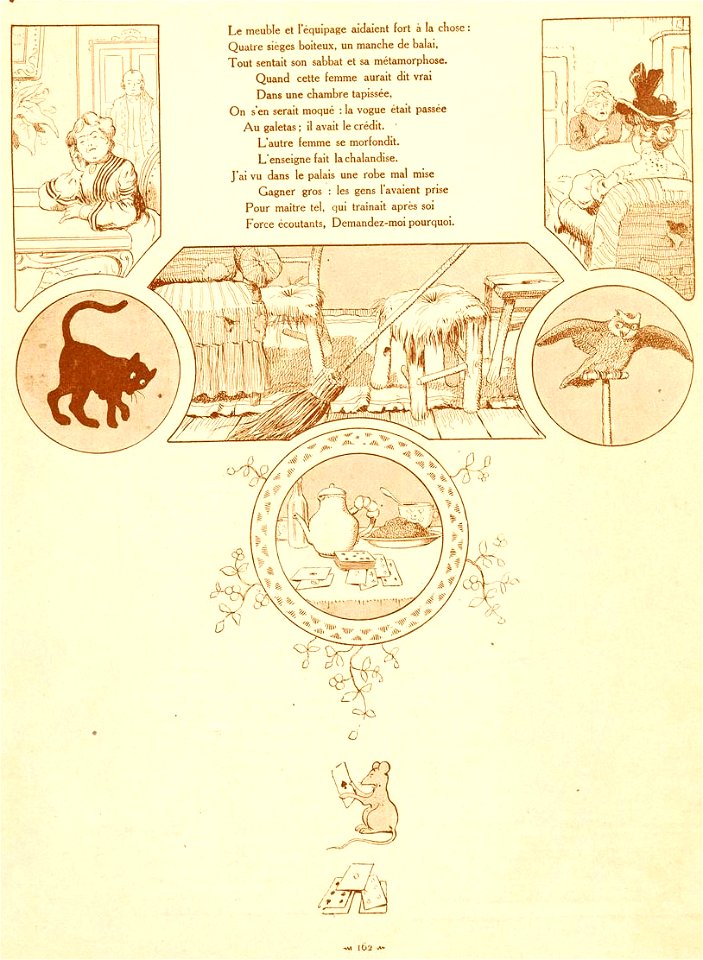 Le meuble et l'équipage aidaient fort à la chose :
Quatre sièges boiteux, un manche de balai,
Tout sentait son sabbat et sa métamorphose.
Quand cette femme aurait dit vrai
Dans une chambre tapissée,
On s'en serait moqué : la vogue était passée
Au galetas ; il avait le crédit.
L'autre femme se morfondit.
L'enseigne fait la chalandise.
J'ai vu dans le palais une robe mal mise
Gagner gros : les gens l'avaient prise
Pour maitre tel, qui trainait après soi
Force écoutants, Demandez-moi pourquoi.
162